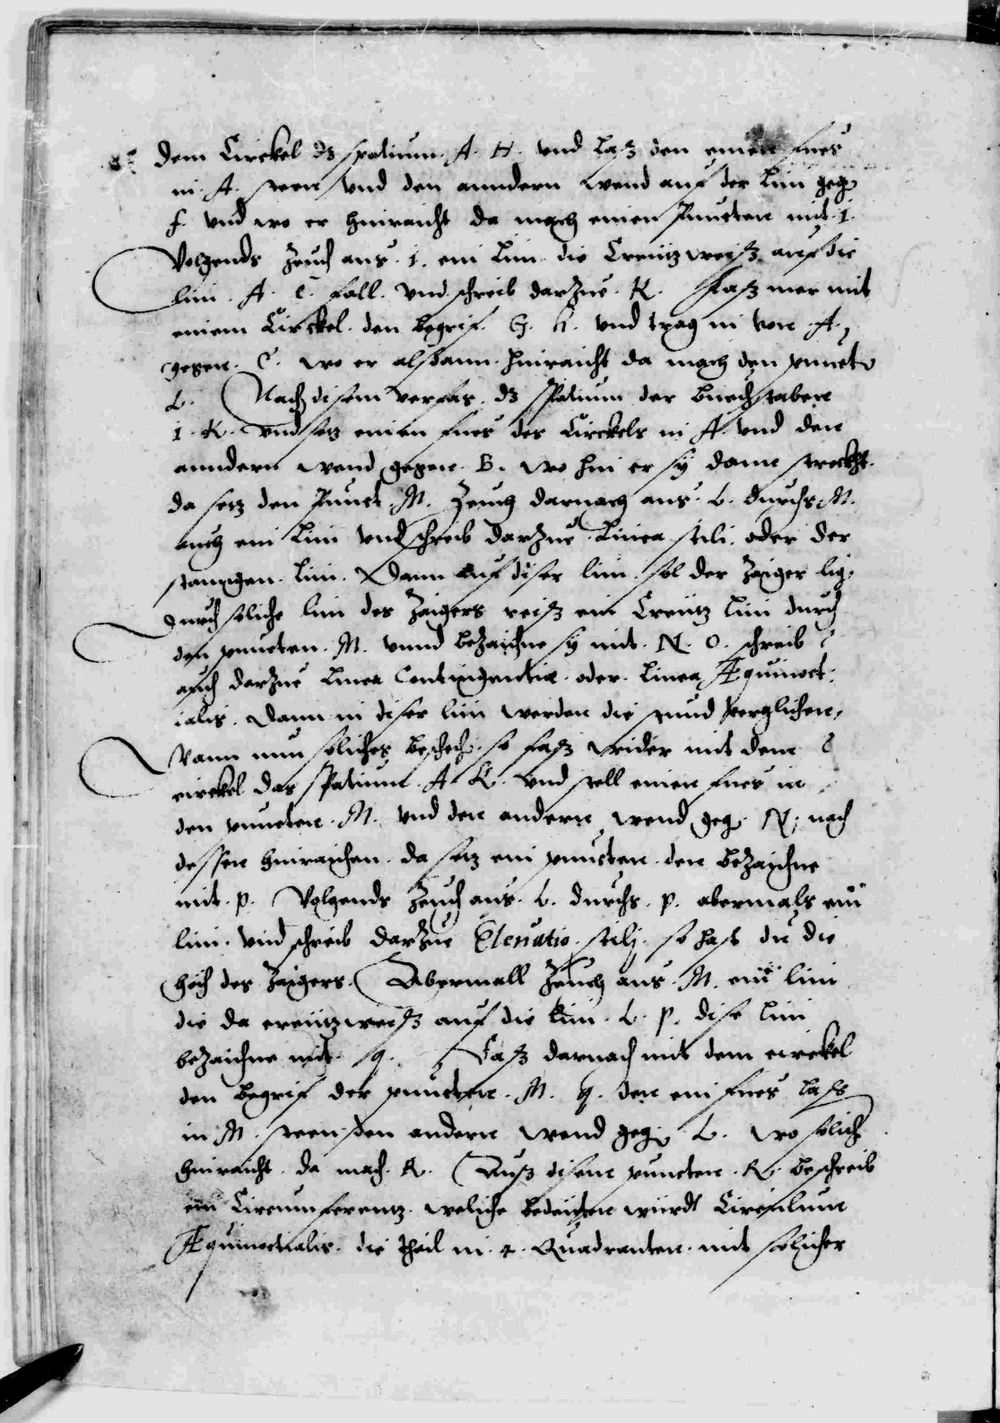 dem Circkel dz spatium. A. H. vnd laß den einen fues
in. A. steen vnd den anndern wend auf der lini geg.
f. vnd wo er hinraicht da mach einen Puncten mit. i.
Volgends zeuch aus. i. ein lini die Creutzweiß auf die
lini. A. C. fall. vnd schreib darzue. K. Faß mer mit
einem Circkel. den begrif. G. H. vnd trag in von A.
gegen. C. wo er alßdann hinraicht da mach den punct
L. Nach disem verfas. dz spatium der buechstaben
i. K. vnd setz einen fues des Circkels in A. vnd den
anndern wend gegen. B. wo hin er sy dann streckht.
da setz den Punct. M. Zeuch darnach aus. L. durchs M.
auch ein lini vnd schreib darzue Linea stili. oder der
stanngen. lini. Dann auf diser lini. sol der Zaiger lig.
durch soliche lini des Zaigers reiß ein Creutz lini durch
den puncten. M. vnnd bezaichne sy mit. N. O. schreib
auch darzue Linea Contingentiæ. oder. Linea Æquinoct:
ialis. Dann in diser lini werden die stund verglichen,
Wann nun soliches beschech. so faß wider mit dem
circkel das spatium. A. K. vnd stell einen fues in
den puncten. M. vnd den andern wend geg. N. nach
dessen hinraichen. da setz ein puncten. den bezaichne
mit. p. Volgends zeuch aus. L. durchs. p. abermals ein
lini. vnd schreib darzue Eleuatio. stilj. so hast du die
höch des Zaigers. Abermall Zeuch aus. M. ein lini
die da creutzweiß auf die lini. L. p. dise lini
bezaichne mit. q. Faß darnach mit dem circkel
den begrif der puncten. M. q. den ein fues laß
in M. steen den andern wend geg. L. wo solich
hinraicht. da mach. R. Auß disem puncten. R. beschreib
ein Circumferentz. weliche bedeuten würdt Circulum
Æquinoctialis. die thail in. 4. Quadranten. mit solicher